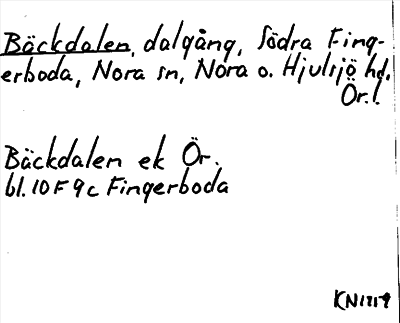 Bäckdalen, dalgång, Södra Fing-
erboda, Nora sn, Nora o. Hjulsjö hd.
Ör. l.
Bäckdalen ek Ör.
bl. 10 F 9 c Fingerboda